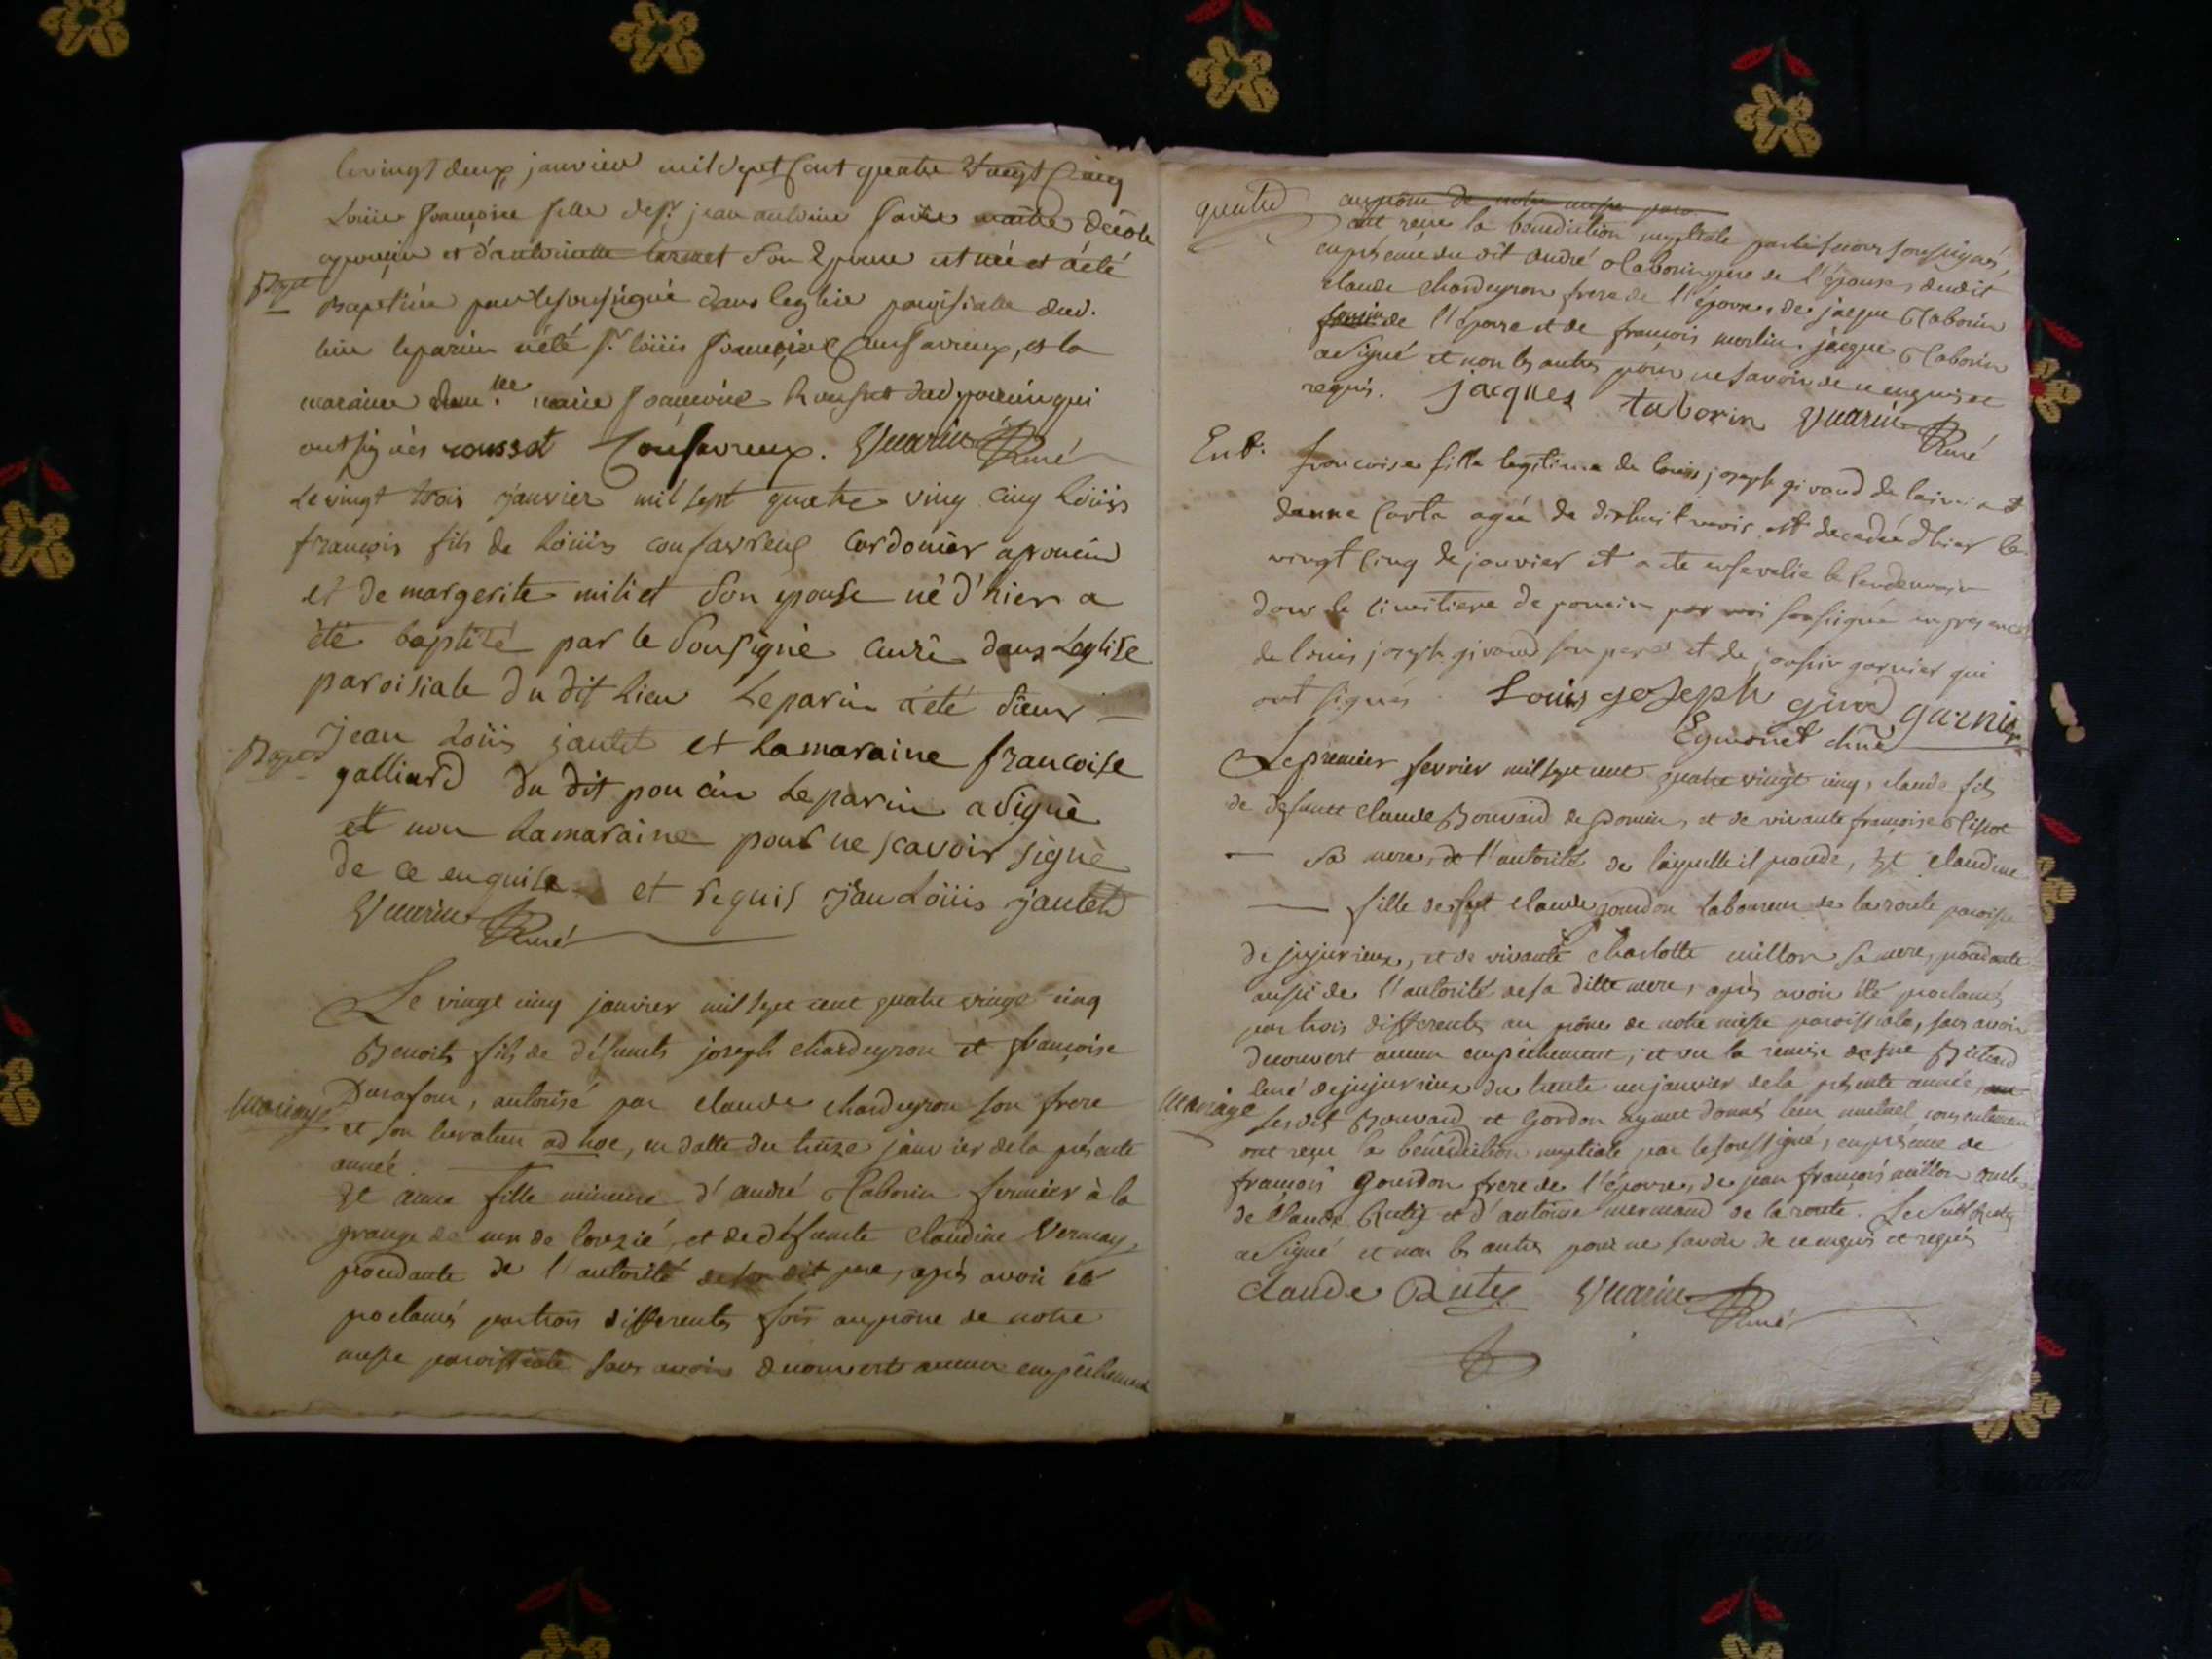 le vingt deux janvier mil sept Cent quatre vingt Cinq
Loüise françoise fille de sr. jean antoine maitre decole
a poncin et d'antoinette son Epouse est née et a été
Bapt
Baptisée par le soussigné dans leglise paroisialle dud.
lieu le parin a été sr. loüis françois Consavreux, et la
maraine dem.lle marie francoise Rousset dud poncin qui
ont signés rousset Consavreux. Vuarin Curé
Le vingt trois janvier mil sept quatre ving cinq Loüis
françois fils de Loüis consavreux Cordonier a poncin
et de margerite miliet son epouse né d'hier a
été baptizé par le Sousigné curé dans Leglise
paroisiale du dit Lieu Le parin a été Sieur
Bapt
jean Loüis jantet et La maraine francoise
galliard du dit poncin Le parin a signé
et non La maraine pour ne scavoir signè
de ce enquise et requis jean Loüis jantet
Vuarin Curé
Le vingt cinq janvier mil sept cent quatre vingt cinq
Benoit fils de défunts joseph chardeyron et françoise
Mariage
Durafour, autorisé par claude chardeyron son frere
et son curateur ad hoc, en datte du treize janvier de la présente
année.
Et anne fille mineure d'andré Taborin fermier à la
grange de et de défunte claudine Vernay,
procedante de l'autorité de son dit pere, après avoir été
proclamés par trois differentes fois au prône de notre
messe paroissiale sans avoir decouvert aucun empêchement
quatre
au prône de notre messe paro
ont reçu la benediction nuptiale par le soussigné,
en présence du dit andré Taborin pere de l'épouse, dudit
claude chardeyron frere de l'époux, de jacque Taborin
de l'épouse et de francois merlin. jacque Taborin
a signé et non les autres pour ne savoir de ce enquis et
requis. jacques taborin Vuarin Curé
Ent.
francoise fille legitime de louis joseph giraud et
danne Carta agée de dishuit mois est decedée d'hier le
vingt Cinq de janvier et a ete ensevelie le lendemain
dans le cimetiere de poncin par moi soussigné en presence
de louis joseph giraud son pere et de garnier qui
ont signés Louis joseph giro garnier
Le premier fevrier mil sept cent quatre vingt cinq, claude fils
de defunt claude Bouvard de Poncin, et de vivante françoise Tissot
sa mere, de l'autorité de laquelle il procede, Et claudine
fille de fut claude gourdon laboureur de la route paroisse
de jujurieux, et de vivante charlotte millon sa mere, procedante
aussi de l'autorité de sa ditte mere, après avoir été proclamés
par trois differentes au prône de notre messe paroissiale, sans avoir
decouvert aucun empêchement, et vu la remise de
Curé de jujurieux du trente un janvier de la présente année,
Mariage
lesdits Bouvard et Gordon ayant donnés leur mutuel consentement
ont reçu la bénédiction nuptiale par le soussigné, en présence de
francois gourdon frere de l'épouse, de jean françois millon oncle
de Claude Rutty et d'antoine mermand de la route. Ledit Rutty
a signé et non les autres pour ne savoir de ce enquis et requis
claude Ruty Vuarin Curé